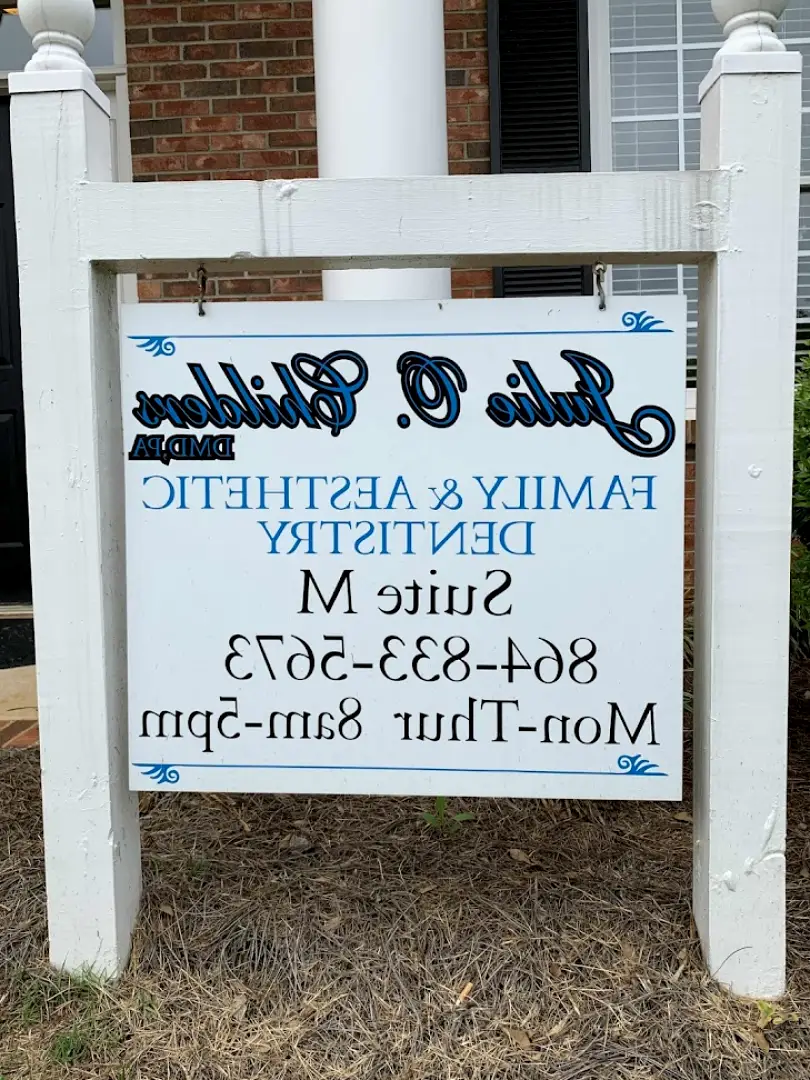 Julie O. Childers
DMD,PA
FAMILY & AESTHETIC
DENTISTRY
Suite M
864-833-5673
Mon-Thur 8am-5pm